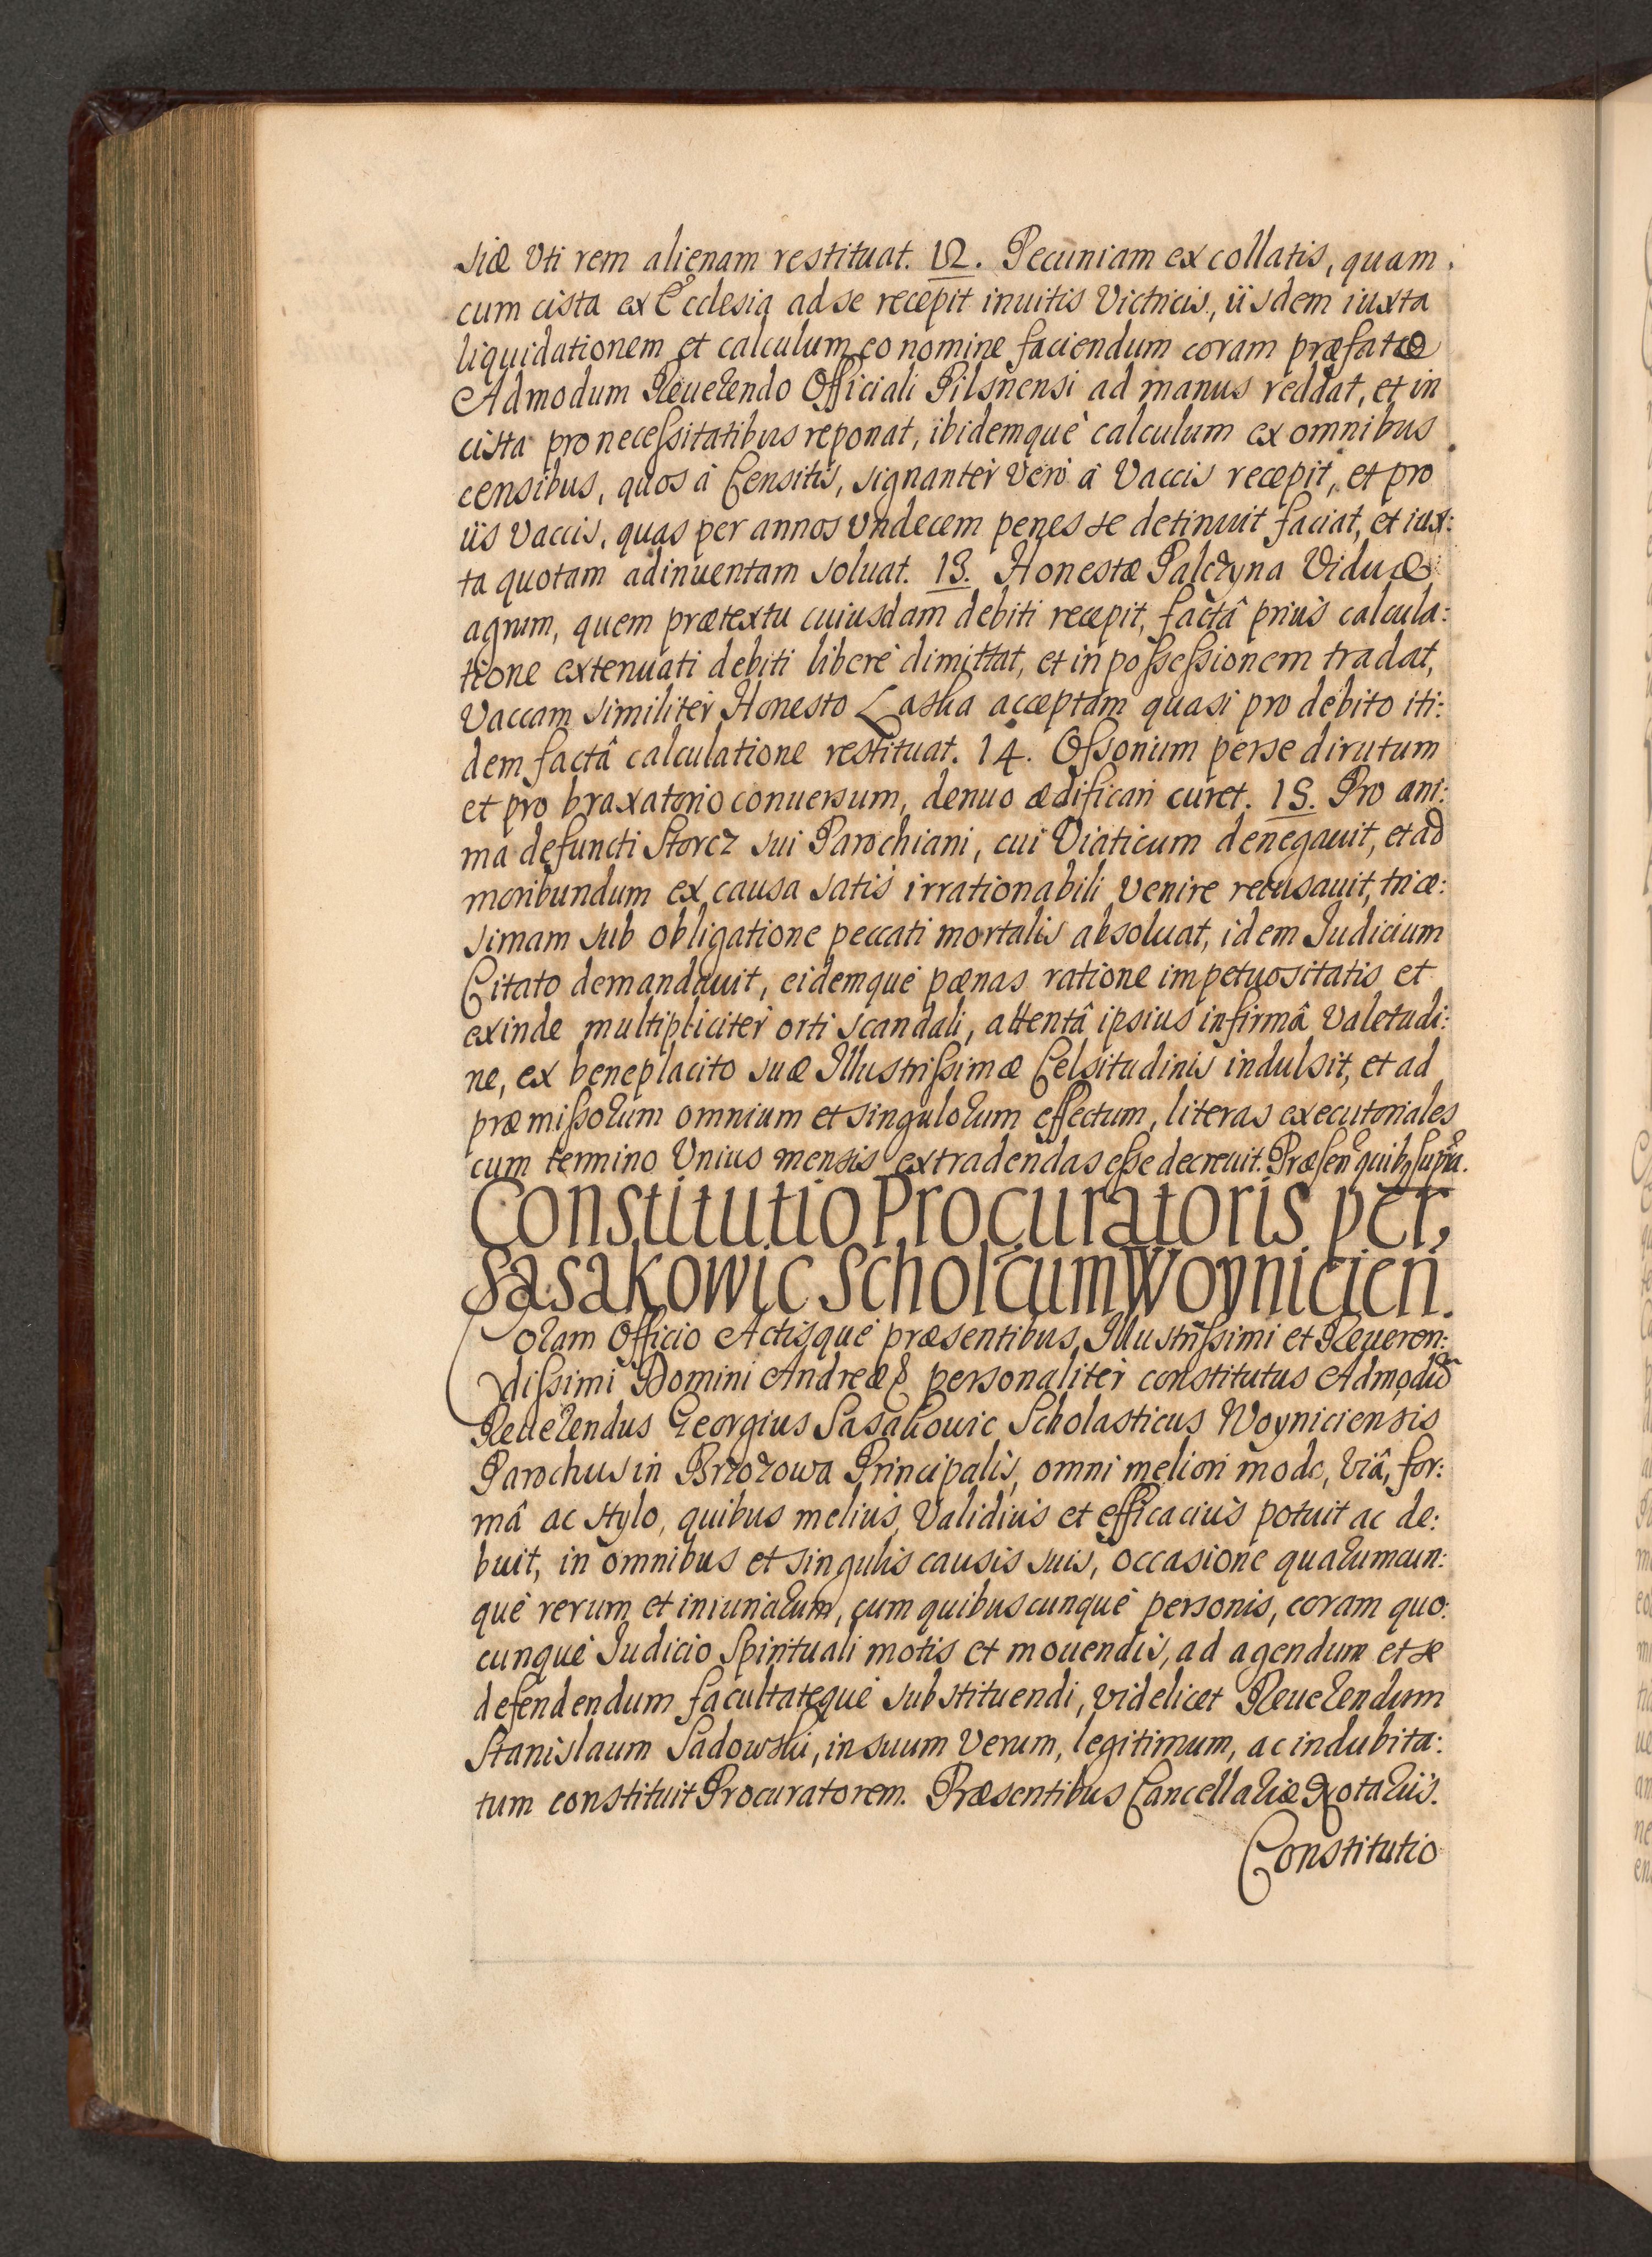 siæ Vti rem alienam restituat. 12. Pecuniam ex collatis, quam
cum cista ex Ecclesia ad se recepit inuitis Victricis, iisdem iuxta
liquidationem et calculum eo nomine faciendum coram præfato
Admodum Reuerendo Officiali Pilsnensi ad manus reddat, et in
cista pro necessitatibus reponat, ibidemquè calculum ex omnibus
censibus, quos à Censitis, signanter Verò à Vaccis recepit, et pro
iis Vaccis, quas per annos Vndecem penes se detinuit faciat, et iux:
ta quotam adinuentam soluat. 13. Honestæ Palczyna Viduæ
agrum, quem prætextu cuiusdam debiti recepit, factâ priùs calcula:
tione extenuati debiti liberè dimittat, et in possessionem tradat,
Vaccam similiter Honesto Laska acceptam quasi pro debito iti:
dem factâ calculatione restituat. 14. Ossonium per se dirutum
et pro braxatorio conuersum, denuo ædificari curet. 15. Pro ani:
ma defuncti Storcz sui Parochiani, cui Viaticum denegauit, et ad
moribundum ex causa satis irrationabili venire recusauit, tricæ:
simam sub obligatione peccati mortalis absoluat, idem Iudicium
Citato demandauit, eidemquè pænas ratione impetuositatis et
exinde multipliciter orti scandali, attentâ ipsius infirmâ Valetudi:
ne, ex beneplacito suæ Illustrissimæ Celsitudinis indulsit, et ad
præmissorum omnium et singulorum effectum, literas executoriales
cum termino Vnius mensis extradendas esse decreuit. Præsen quib9 supra.
Constitutio Procuratoris per,
Sasakowic Schol:cum Woyniciēn.
Coram Officio Actisquè præsentibus Illustrissimi et Reueren:
dissimi Domini Andreæ personaliter constitutus Admodū
Reuerendus Georgius Sasakowic Scholasticus Woyniciensis
Parochus in Brzozowa Principalis, omni meliori modo, Viâ, for:
mâ ac stylo, quibus meliùs, Validiùs et efficaciùs potuit ac de:
buit, in omnibus et singulis causis suis, occasione quarumcun:
què rerum et iniuriarum, cum quibuscunquè personis, coram quo:
cunquè Iudicio Spirituali motis et mouendis, ad agendum et se
defendendum facultatequè substituendi, videlicet Reuerendum
Stanislaum Sadowski, in suum Verum, legitimum, ac indubita:
tum constituit Procuratorem. Præsentibus Cancellariæ Notariis.
Constitutio